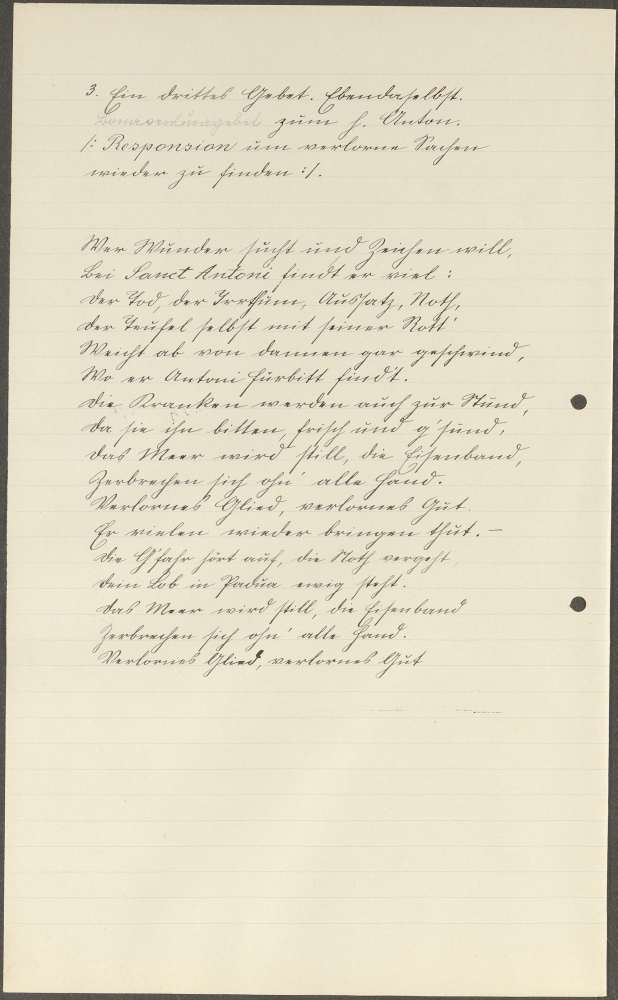 3. Ein drittes Gebet. Ebendaselbst.
Bonaventuragebet zum h. Anton.
/: Responsion um verlorne Sachen
wieder zu finden :/.
Wer Wunder sucht und Zeichen will,
Bei Sanct Antoni findt er viel:
Der Tod, der Irrthum, Aussatz, Noth,
Der Teufel selbst mit seiner Rott'
Weicht ab von dannen gar geschwind,
Wo er Antoni Fürbitt find't.
Die Kranken werden auch zur Stund,
Da sie ihn bitten, frisch und g'sund,
Das Meer wird still, die Eisenband,
Zerbrechen sich ohn' alle Hand.
Verlornes Glied, verlornes Gut.
Er vielen wieder bringen thut. –
Die G'fahr hört auf, die Noth vergeht,
Dein Lob in Padua ewig steht.
Das Meer wird still, die Eisenband
Zerbrechen sich ohn' alle Hand.
Verlornes Glied, verlornes Gut